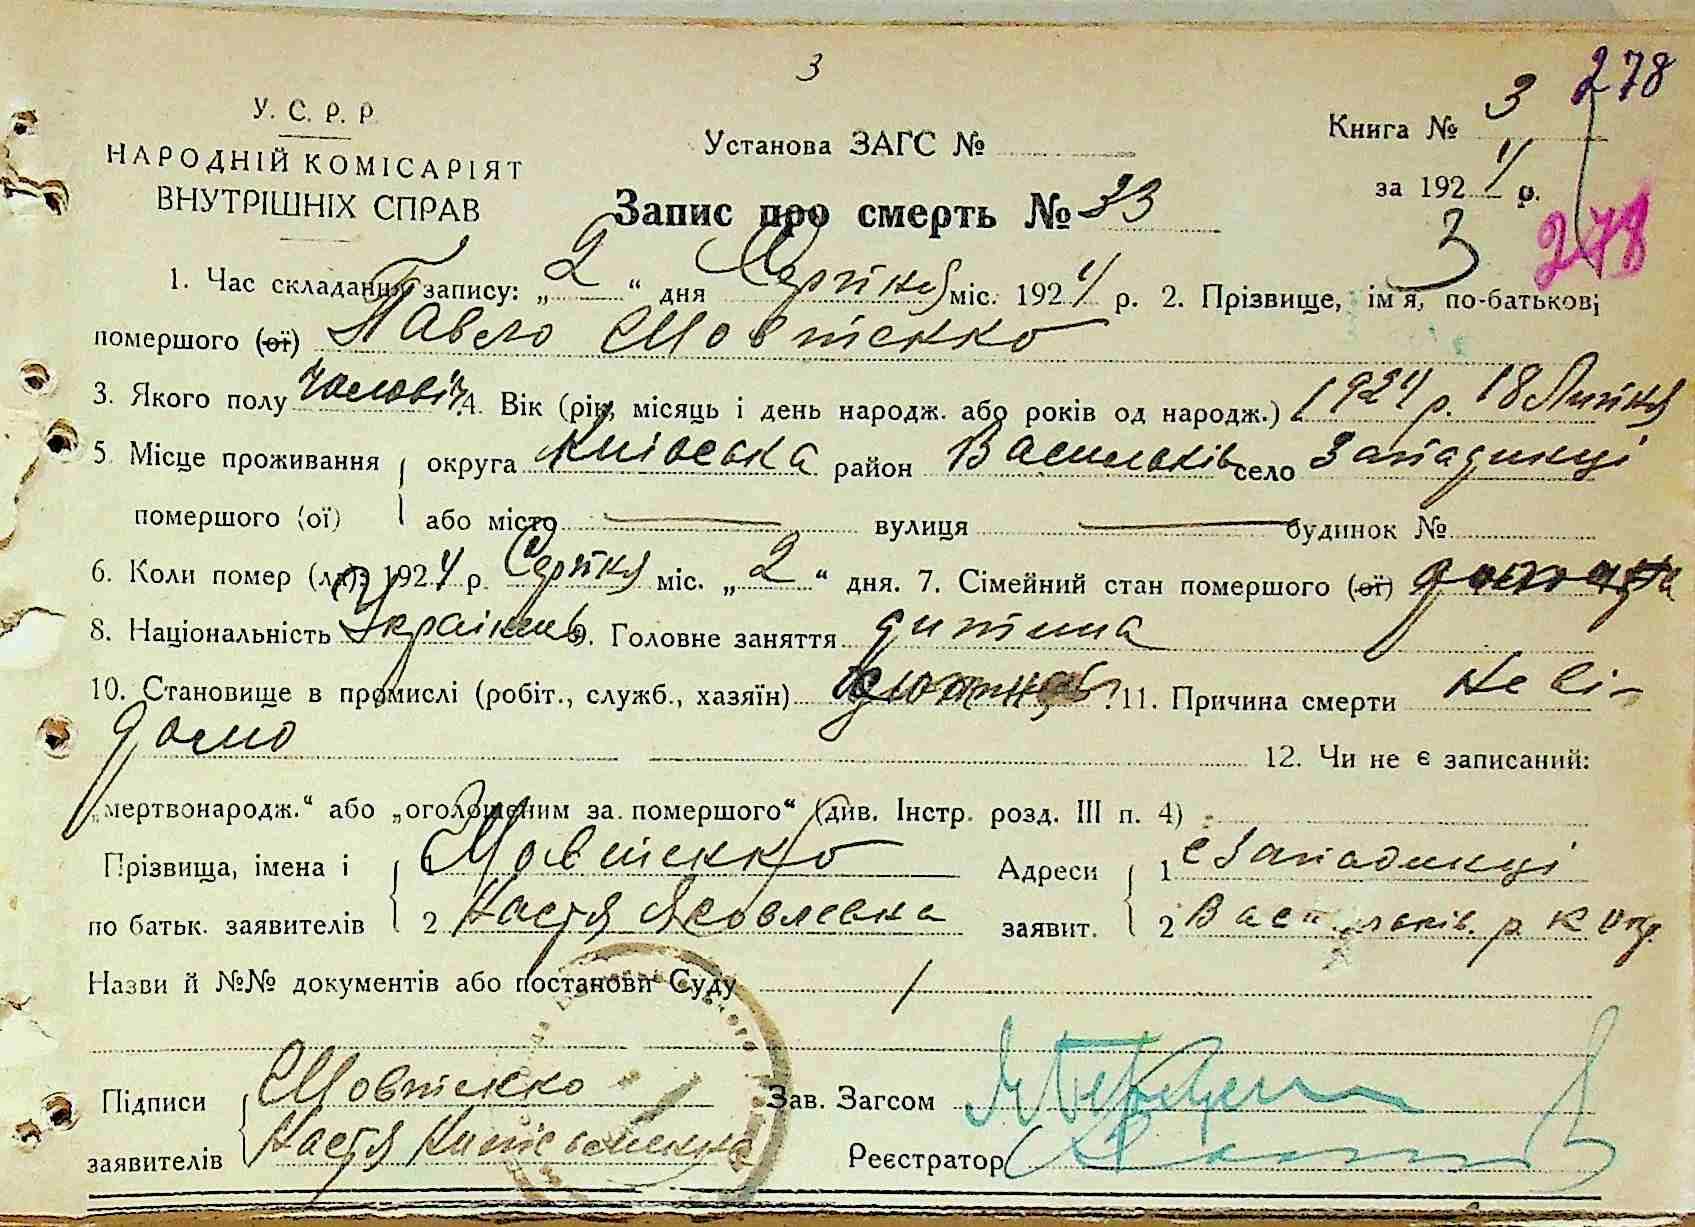 3
278
У. С. Р. Р
НАРОДНІЙ КОМІСАРІЯТ
ВНУТРІШНІХ СПРАВ
Установа ЗАГС №
Книга № 3
за 1924 р.
3
278
Запис про смерть № 33
1. Час складання запису: „2“ дня Серпня міс. 1924 р. 2. Прізвище, ім'я, по-батькові
помершого (ої) Павло Шовтенко
3. Якого полу чоловіч. 4. Вік (рік, місяць і день народж. або років од народж.) 1924 р. 18 Липня
5. Місце проживання округа Київська район Васильків село Западинці
помершого (ої) або місто — вулиця — будинок №
6. Коли помер (ла): 1924 р. Серпня міс. „2“ дня. 7. Сімейний стан помершого (ої)
8. Національність Українець 9. Головне заняття дитина
10. Становище в промислі (робіт., служб., хазяїн) 11. Причина смерти Неві-
домо
12. Чи не є записаний:
„мертвонародж.“ або „оголошеним за помершого“ (див. Інстр. розд. III п. 4)
Прізвища, імена і 1 Шовтенко Адреси 1 с Западинці
по батьк. заявителів 2 Настя Яковлевна заявит. 2 Васильків. р. К окр.
Назви й №№ документів або постанови Суду
Підписи Шовтенко Зав. Загсом
заявителів Настя Реєстратор